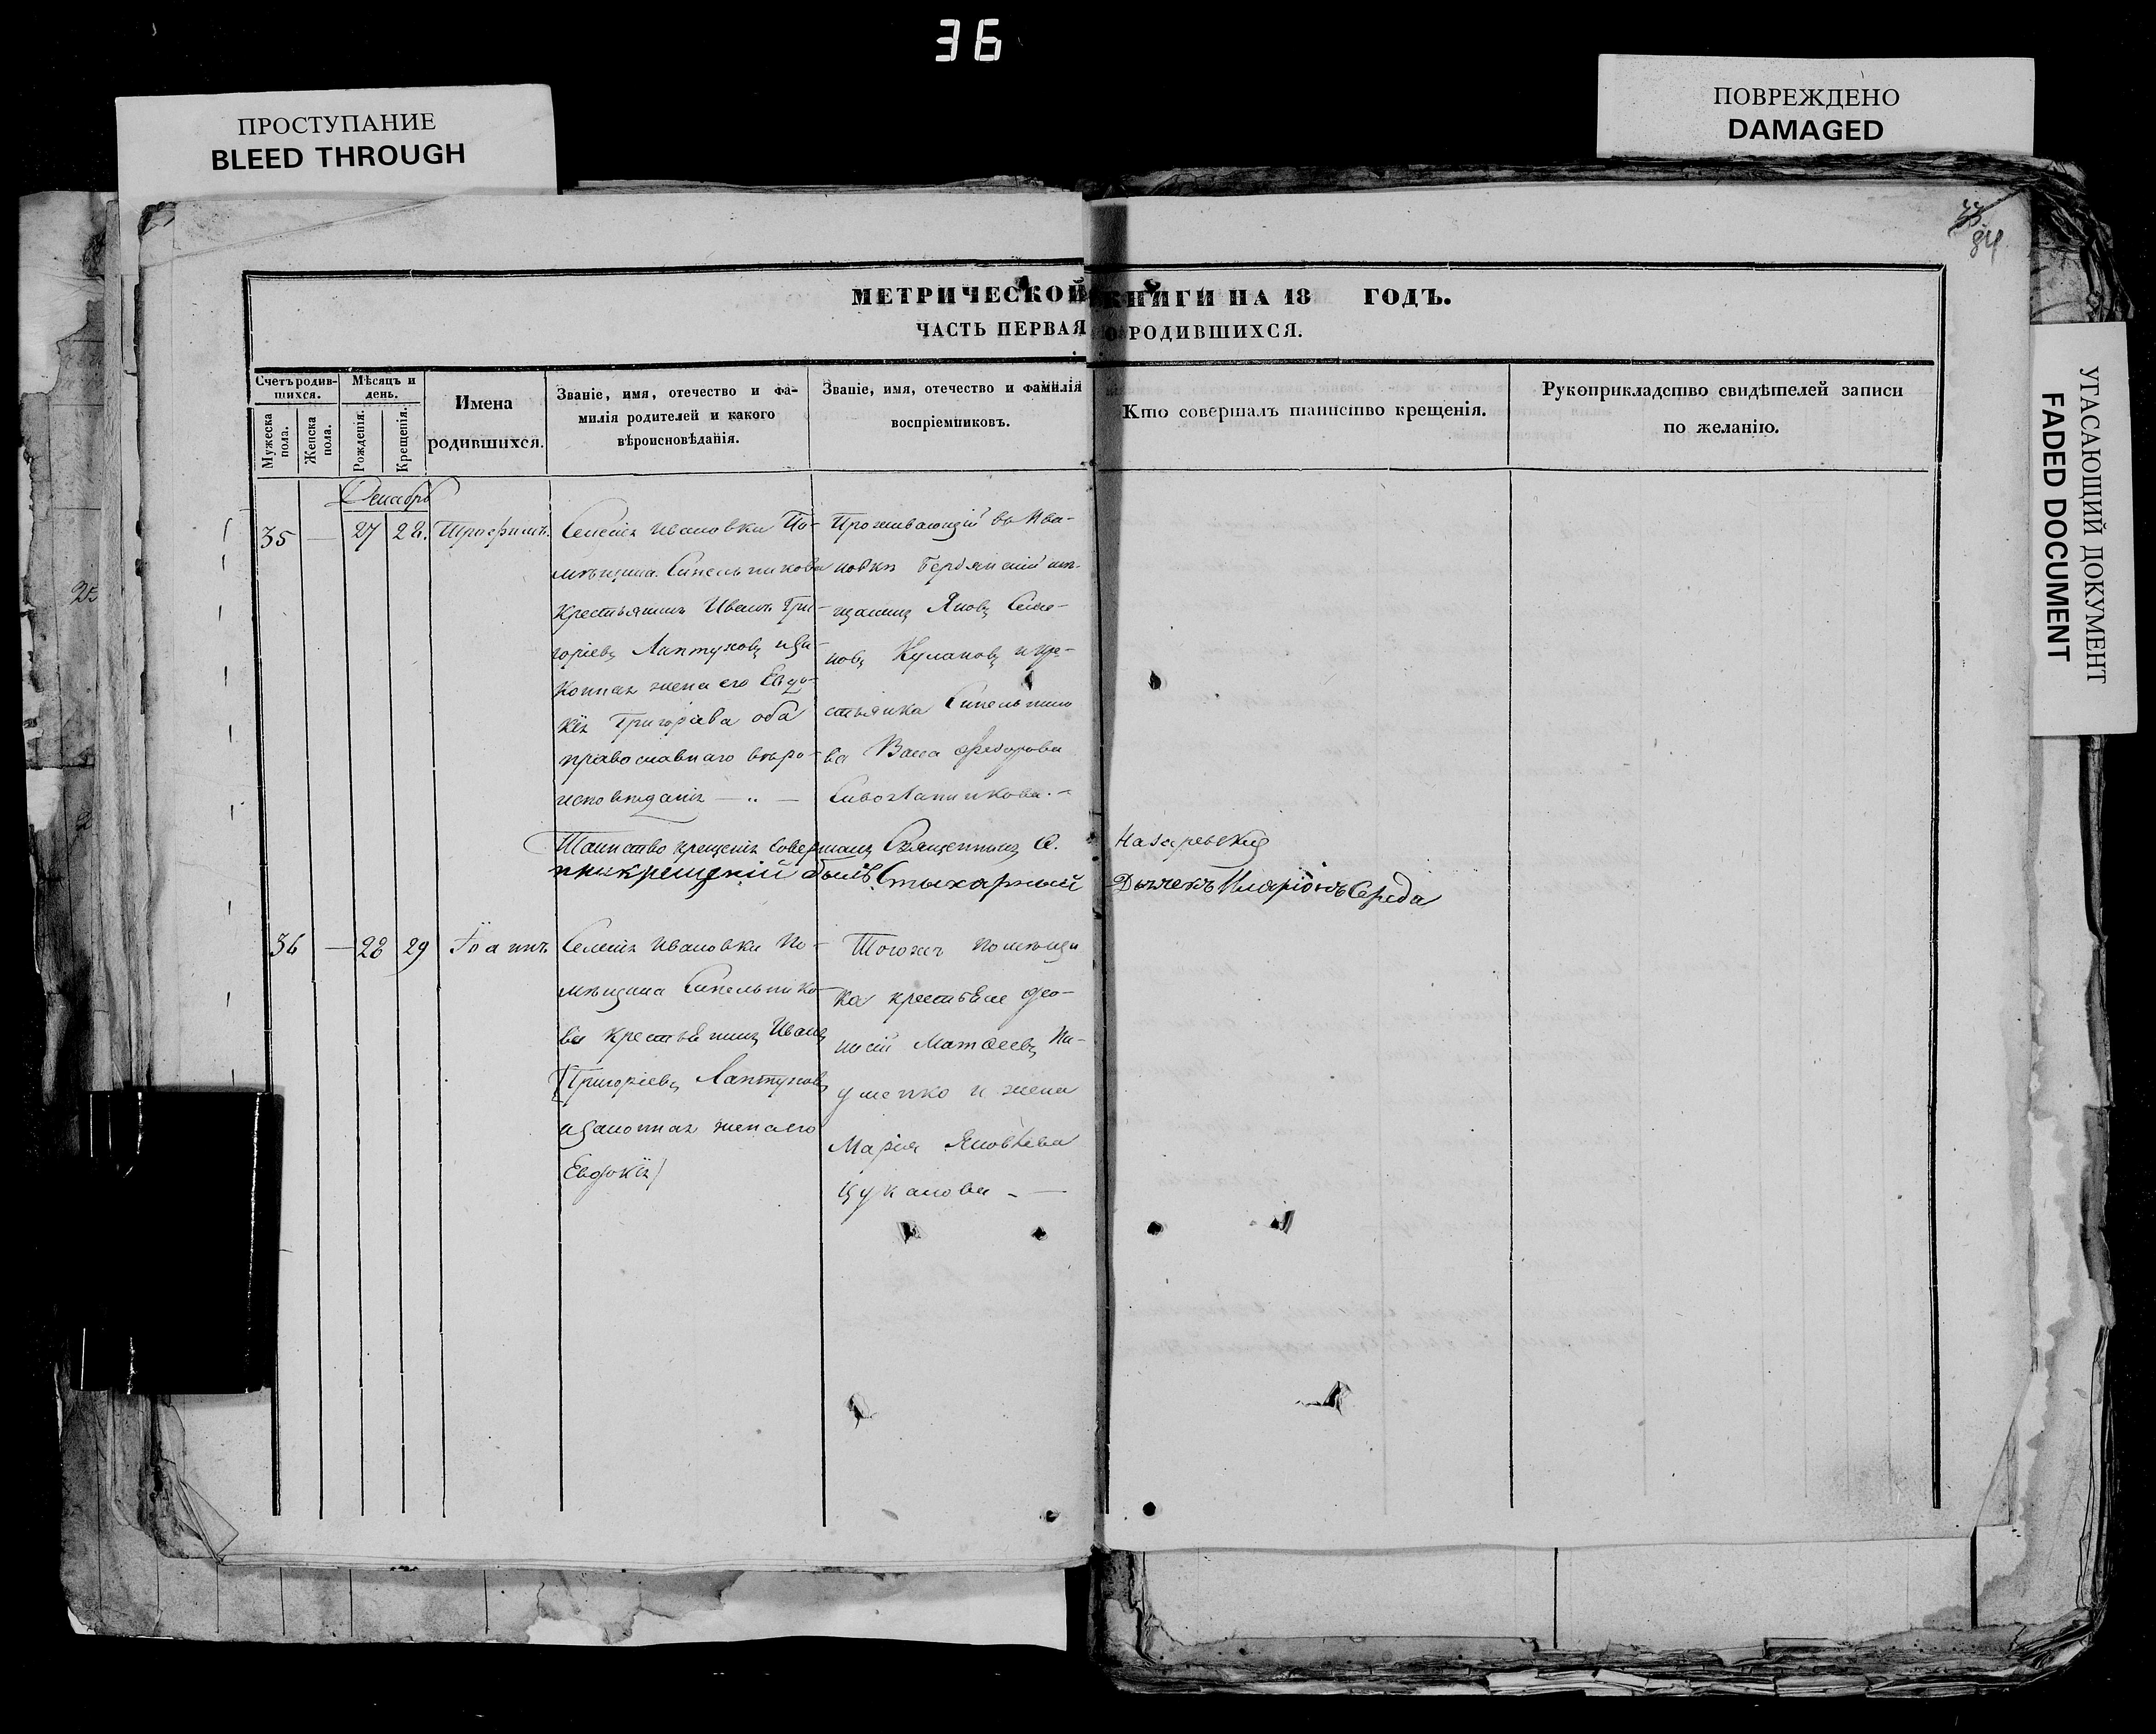 36
ПРОСТУПАНИЕ
BLEED THROUGH
ПОВРЕЖДЕНО
DAMAGED
УГАСАЮЩИЙ ДОКУМЕНТ
FADED DOCUMENT
84
МЕТРИЧЕСКОЙ КНИГИ НА 18 ГОДЪ.
ЧАСТЬ ПЕРВАЯ О РОДИВШИХСЯ.
Счетъ родив-
шихся.
Мужеска
пола.
Женска
пола.
Мѣсяцъ и
день.
Рожденія.
Крещенія.
Имена
родившихся.
Званіе, имя, отечество и фа-
милія родителей и какого
вѣроисновѣданія.
Званіе, имя, отечество и фамилія
воспріемниковъ.
Кто совершалъ таинство крещенія.
Рукоприкладство свидѣтелей записи
по желанію.
Декабрь
35 — 27 28.
Селенія Ивановки По-
мѣщика Синельникова
Крестьянинъ Иванъ Гри-
горіевъ Лаптуховъ и за-
конная жена его Евдо-
кія Григоріева оба
православнаго вѣро-
исповѣданія — „ —
Проживающій въ Ива-
новки Бердянскій мѣ-
щанинъ Яковъ Семе-
новъ и кре-
стьянка Синельнико
ва Федорова
Таинство крещенія совершалъ Священникъ А. Назаревскій
при крещеніи былъ Стихарный Дьячекъ Иларіонъ Середа
36 — 28 29 Іоаннъ
Селенія Ивановки По-
мѣщика Синельнико-
ва крестьянинъ Иванъ
Григоріевъ Лаптуховъ
и законная жена его
Евдокія
Тогожъ помѣщи
ка крестьяне Део-
нисій Матѳеевъ
и жена
Марія Яковлева
Цуканова —